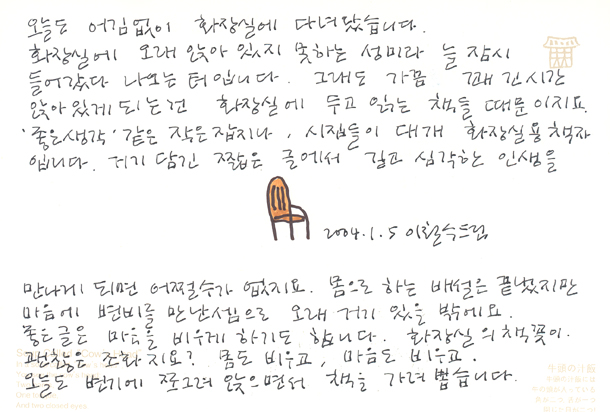 오늘도 어김없이 화장실에 다녀왔습니다.
화장실에 오래 앉아 있지 못하는 성미라 늘 잠시
들어갔다 나오는 터입니다. 그래도 가끔 꽤 긴 시간
앉아 있게 되는건 화장실에 두고 읽는 책들 때문이지요.
'좋은생각' 같은 작은잡지나, 시집들이 대개 화장실용 책자
입니다. 거기 담긴 짧은 글에서 길고 심각한 인생을
2004.1.5 이철수드림
만나게 되면 어쩔수가 없지요. 몸으로 하는 배설은 끝났지만
마음에 변비를 만난셈으로 오래 거기 있을 밖에요.
좋은글은 마음을 비우게 하기도 합니다. 화장실의 책꽂이.
괜찮은 조화지요? 몸도 비우고, 마음도 비우고.
오늘도 변기에 쪼그려 앉으면서 책을 가려 뽑습니다.